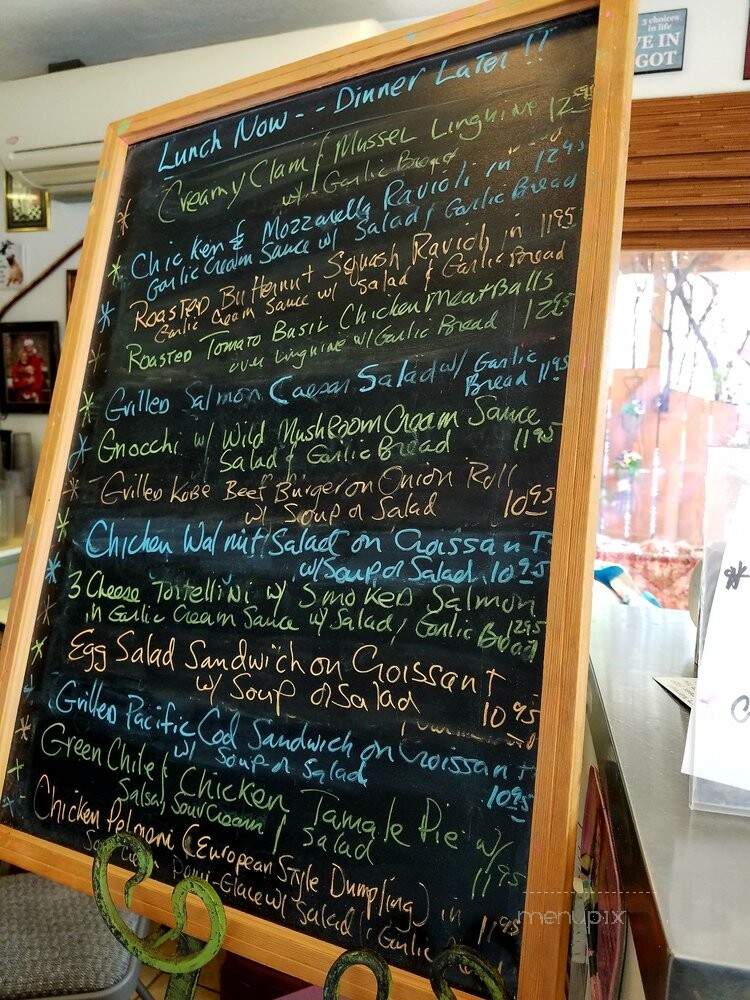 3 choices
in life
VE IN
GOT
Lunch Now -- Dinner Later !!
Creamy Clam & Mussel Linguine 12.95
w/ Garlic Bread
Chicken & Mozzarella Ravioli in 12.95
Garlic Cream Sauce w/ Salad & Garlic Bread
Roasted Butternut Squash Ravioli in 11.95
Garlic Cream Sauce w/ Salad & Garlic Bread
Roasted Tomato Basil Chicken Meatballs
over Linguine w/ Garlic Bread 12.95
Grilled Salmon Caesar Salad w/ Garlic
Bread 11.95
Gnocchi w/ Wild Mushroom Cream Sauce
Salad & Garlic Bread 11.95
Grilled Kobe Beef Burger on Onion Roll
w/ Soup or Salad 10.95
Chicken Walnut Salad on Croissant
w/ Soup or Salad 10.95
3 Cheese Tortellini w/ Smoked Salmon
in Garlic Cream Sauce w/ Salad / Garlic Bread 12.95
Egg Salad Sandwich on Croissant
w/ Soup or Salad 10.95
Grilled Pacific Cod Sandwich on Croissant
w/ Soup or Salad 10.95
Green Chile & Chicken Tamale Pie w/
Salsa / Sour Cream / Salad 11.95
Chicken Pelmeni (European Style Dumpling) in
Demi-Glace w/ Salad & Garlic 11.95
menupix